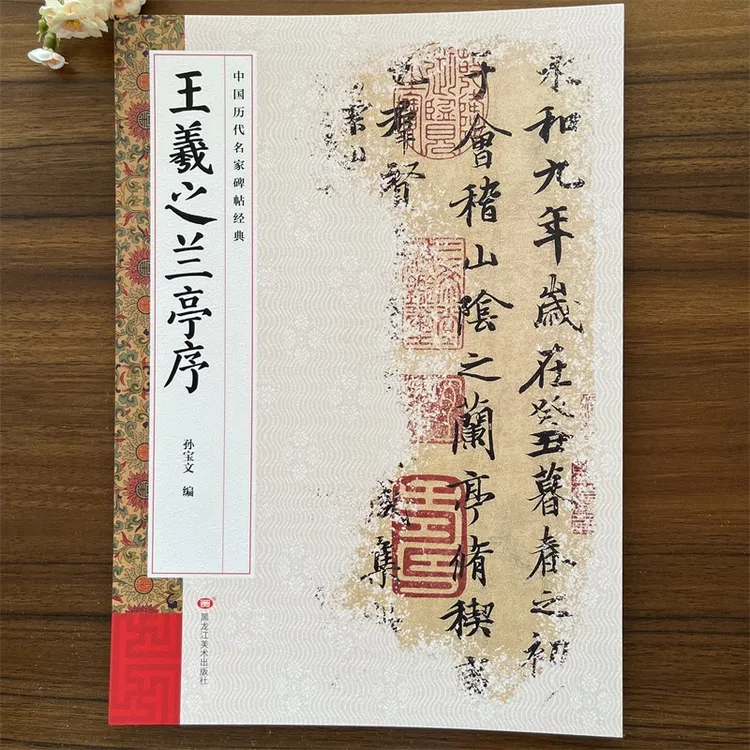 中国历代名家碑帖经典
王羲之兰亭序
孙宝文 编
黑龙江美术出版社
永和九年歲在癸丑暮春之初
于會稽山陰之蘭亭脩稧事
也羣賢 咸集